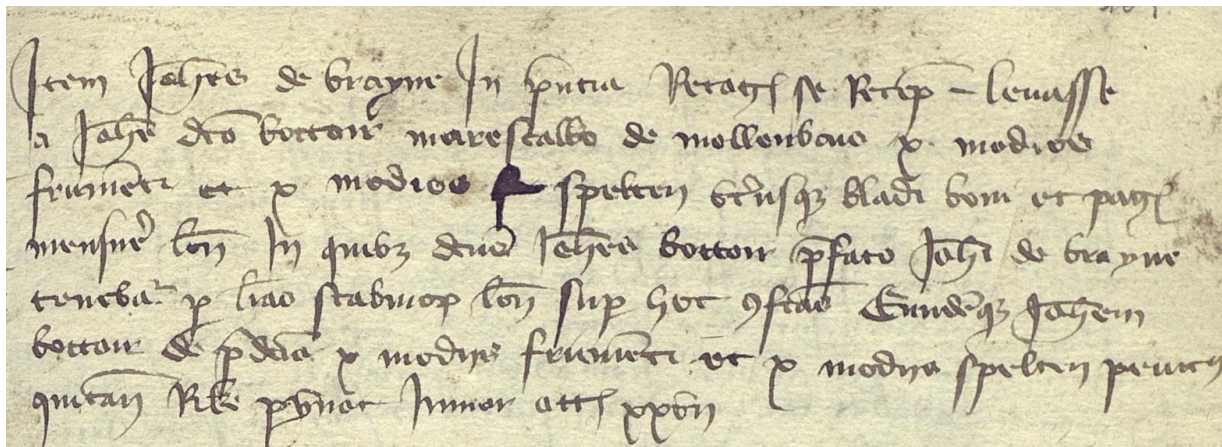 Item Joh̄es de brayne In p̄ntia Recogn̄ se Recep̄ – levasse
a Joh̄e dc̄o bottoir marescallo de mollenbeae x. modios
frumēti et x modios spelten utriusqꝫ bladi boni et pagꝭ
mensure lov̄ In quibꝫ dc̄us Joh̄es bottoir p̄fato Joh̄i de brayne
teneba͛ ꝑ lr̄as scabinoꝝ lov̄ suꝑ hoc ꝯfc̄as Eundēqꝫ Joh̄em
bottoir de p̄dc̄is x modijs frumēti et x modijs spelten penitꝰ
quitan̄ Junior octꝭ xxvij